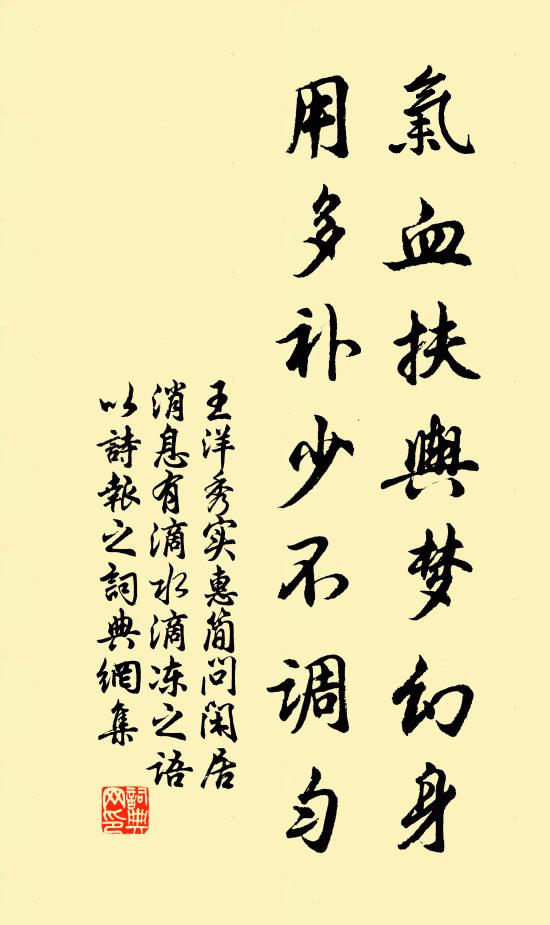 氣血扶輿梦幻身
用多补少不调匀
王洋秀实惠简问闲居
消息有滴水滴冻之语
以詩報之詞典網集
詞典
网印